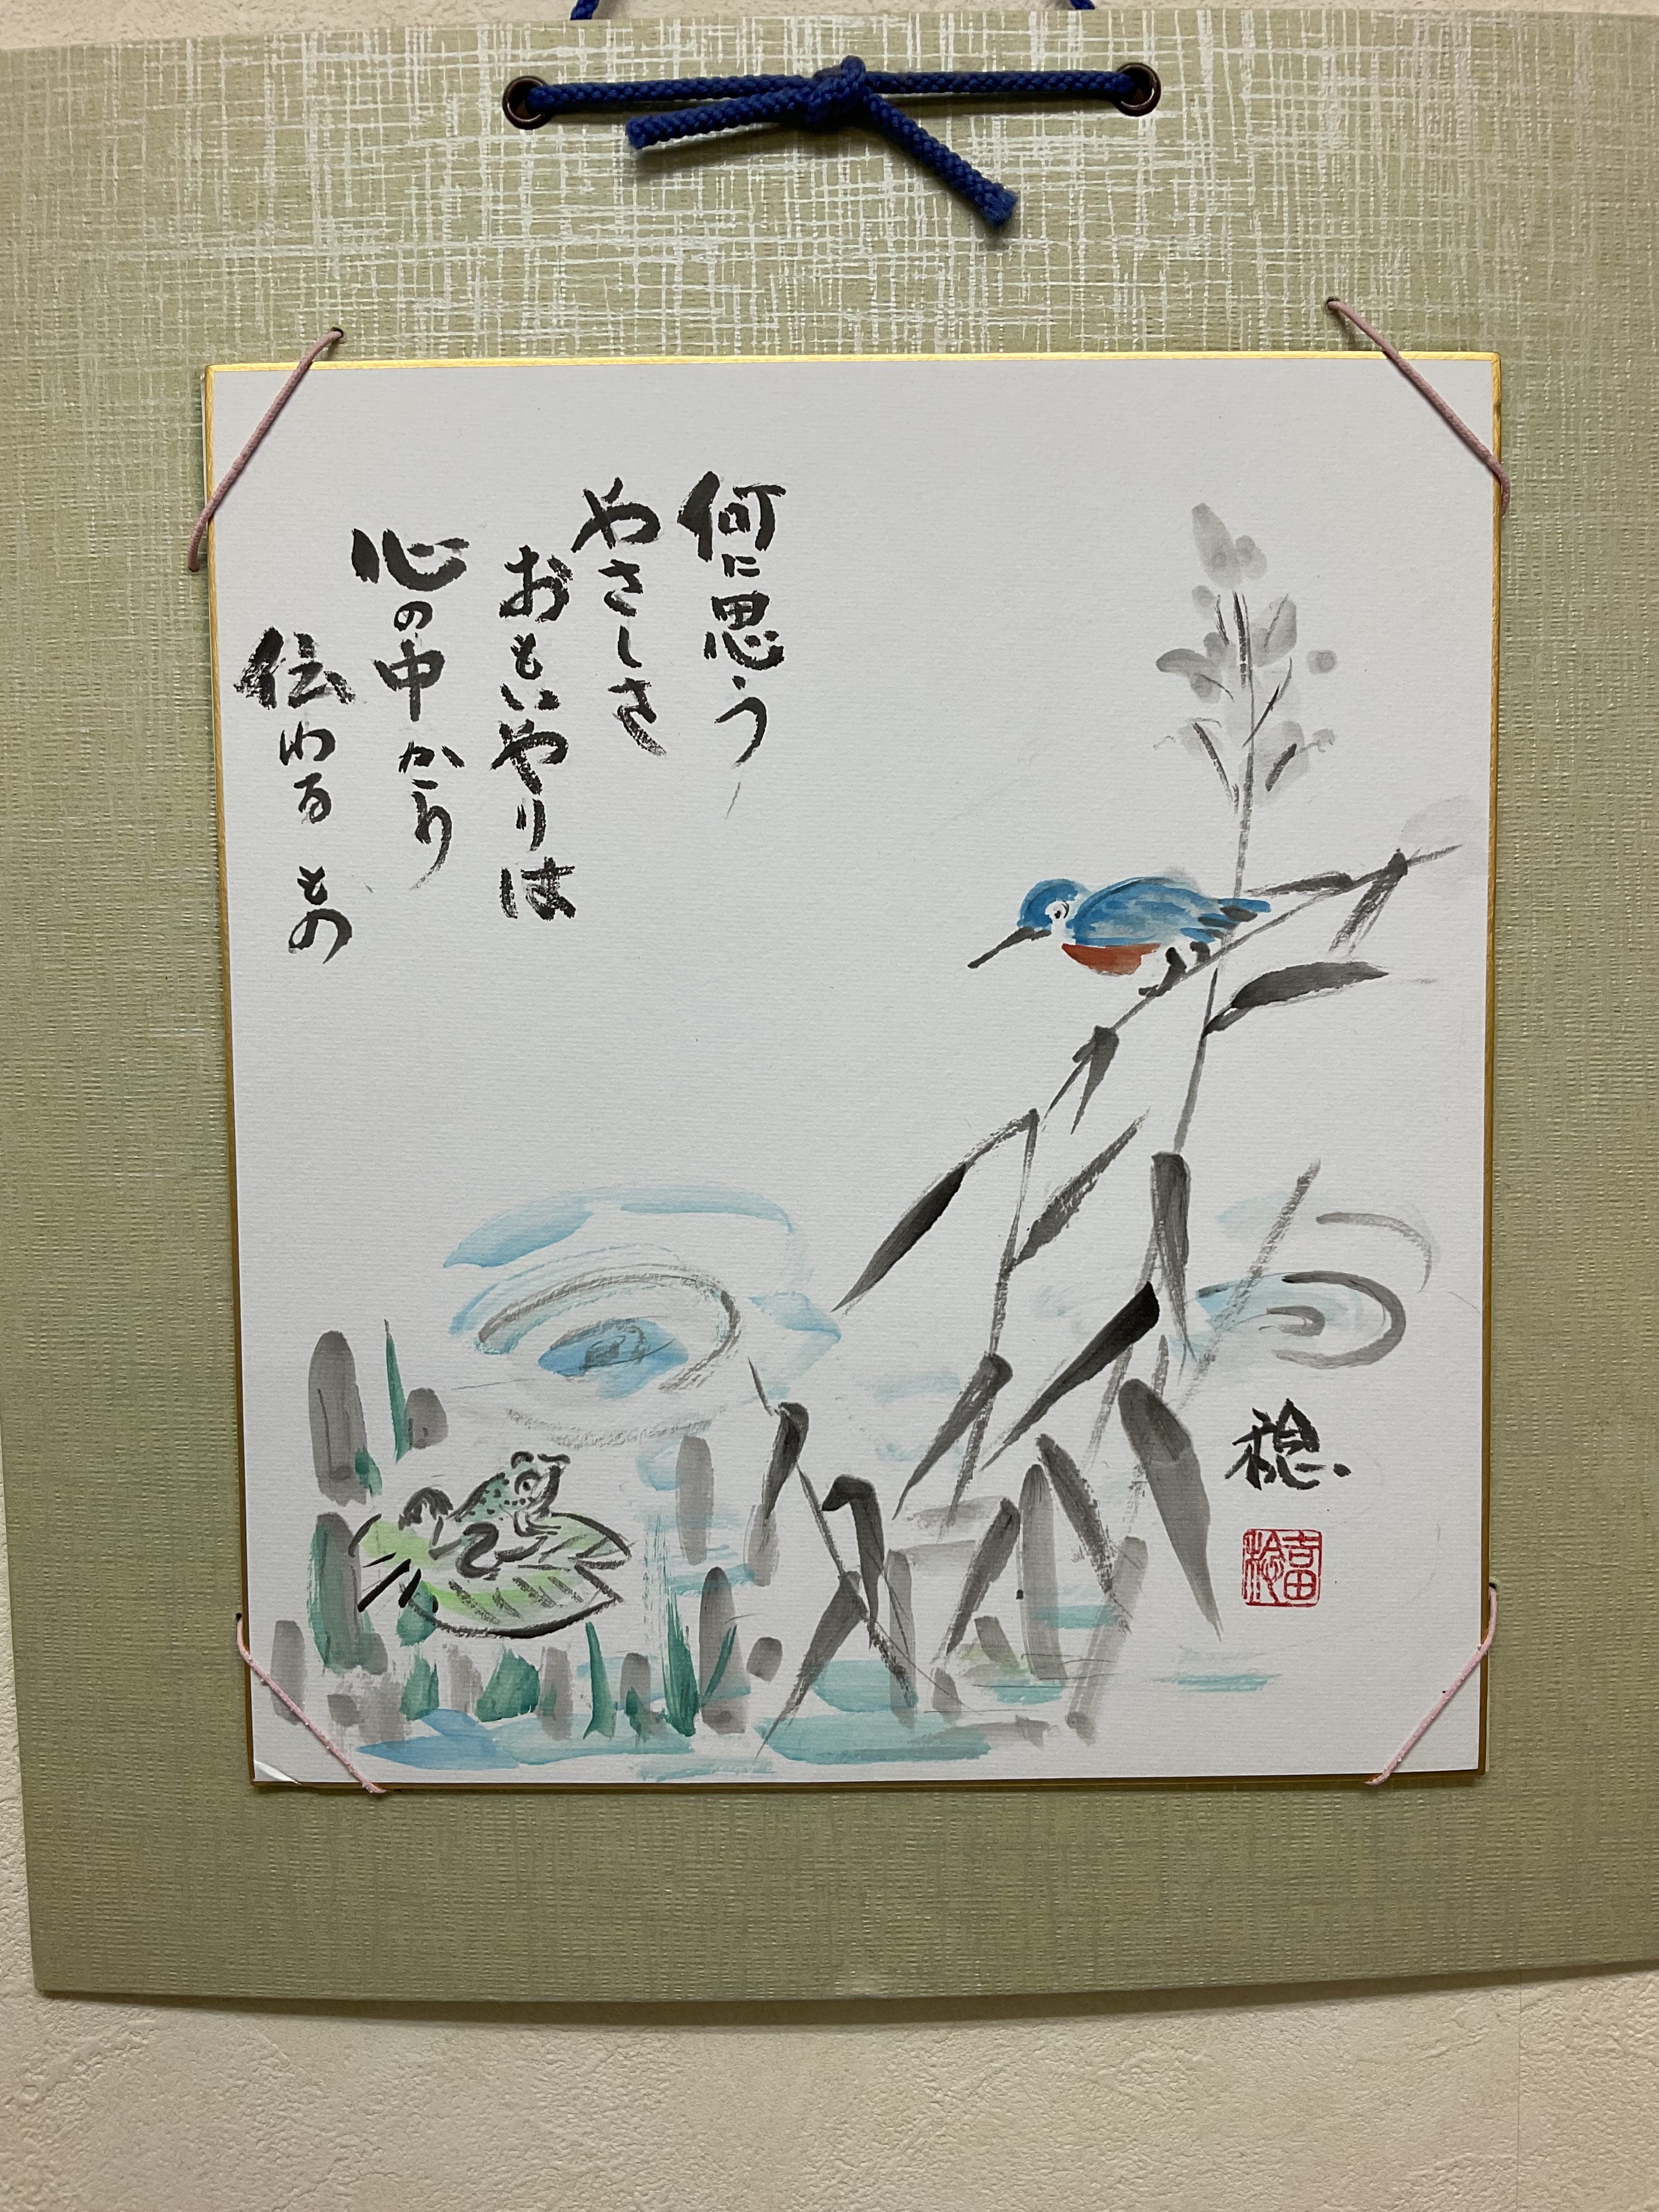 何に思う
やさしさ
おもいやりは
心の中から
伝わるもの
稔